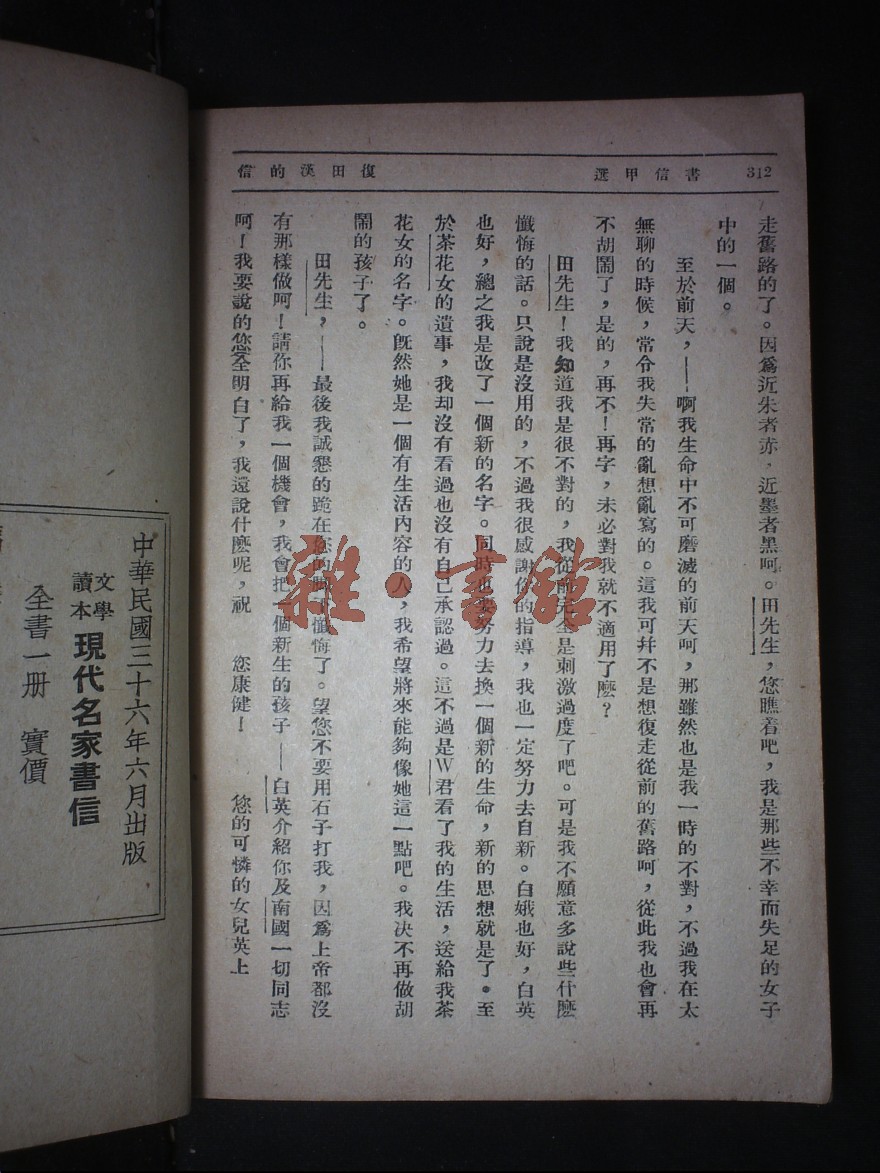 312
書信甲選
復田漢的信
走舊路的了。因爲近朱者赤，近墨者黑呵。田先生，您瞧着吧，我是那些不幸而失足的女子
中的一個。
至於前天，——啊我生命中不可磨滅的前天呵，那雖然也是我一時的不對，不過我在太
無聊的時候，常令我失常的亂想亂寫的。這我可幷不是想復走從前的舊路呵，從此我也會再
不胡鬧了，是的，再不！再字，未必對我就不適用了麽？
田先生！我知道我是很不對的，我從前完全是刺激過度了吧。可是我不願意多說些什麽
懺悔的話。只說是沒用的，不過我很感謝你的指導，我也一定努力去自新。白娥也好，白英
也好，總之我是改了一個新的名字。同時也要努力去換一個新的生命，新的思想就是了。至
於茶花女的遺事，我却沒有看過也沒有自己承認過。這不過是W君看了我的生活，送給我茶
花女的名字。旣然她是一個有生活內容的人，我希望將來能夠像她這一點吧。我決不再做胡
鬧的孩子了。
田先生，——最後我誠懇的跪在您的脚下懺悔了。望您不要用石子打我，因爲上帝都沒
有那樣做呵！請你再給我一個機會，我會把一個新生的孩子——白英介紹你及南國一切同志
呵！我要說的您全明白了，我還說什麽呢，祝　您康健！　您的可憐的女兒英上
中華民國三十六年六月出版
文學讀本 現代名家書信
全書一册 實價
雜·書館